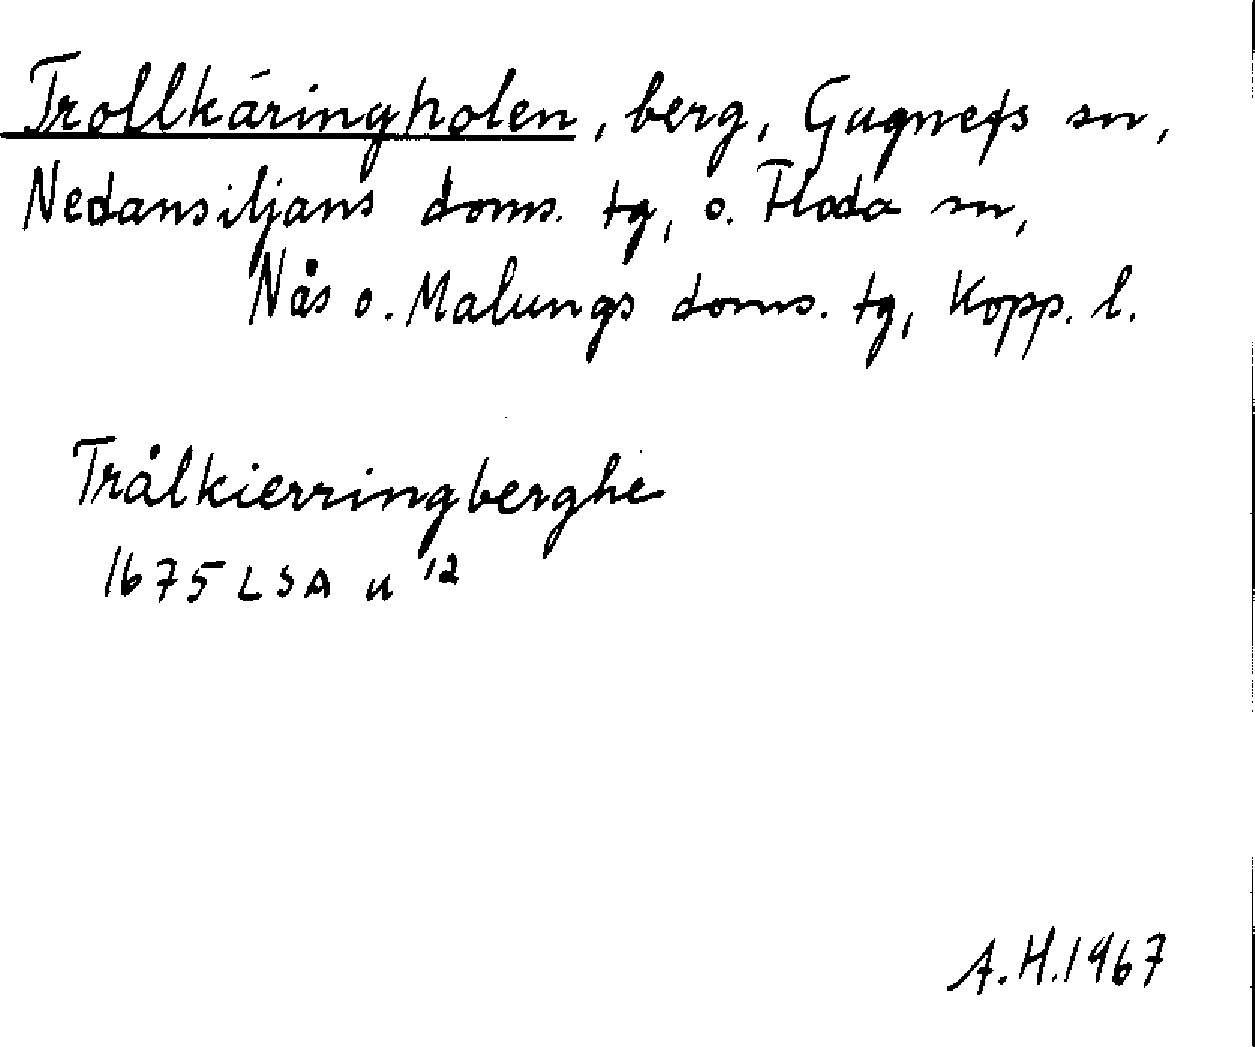 Trollkäringholen, berg, Gagnefs sn,
Nedansiljans doms. tg, o. Floda sn,
Nås o. Malungs doms. tg, Kopp. l.
Trålkierringberghe
1675 LSA u 12
A.H. 1967